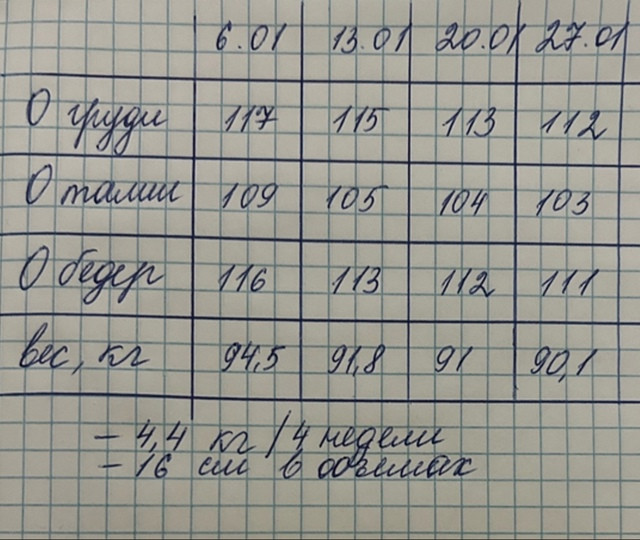 6.01 13.01 20.01 27.01
О груди 117 115 113 112
О талии 109 105 104 103
О бедер 116 113 112 111
вес, кг 94,5 91,8 91 90,1
- 4,4 кг / 4 недели
- 16 см в объемах